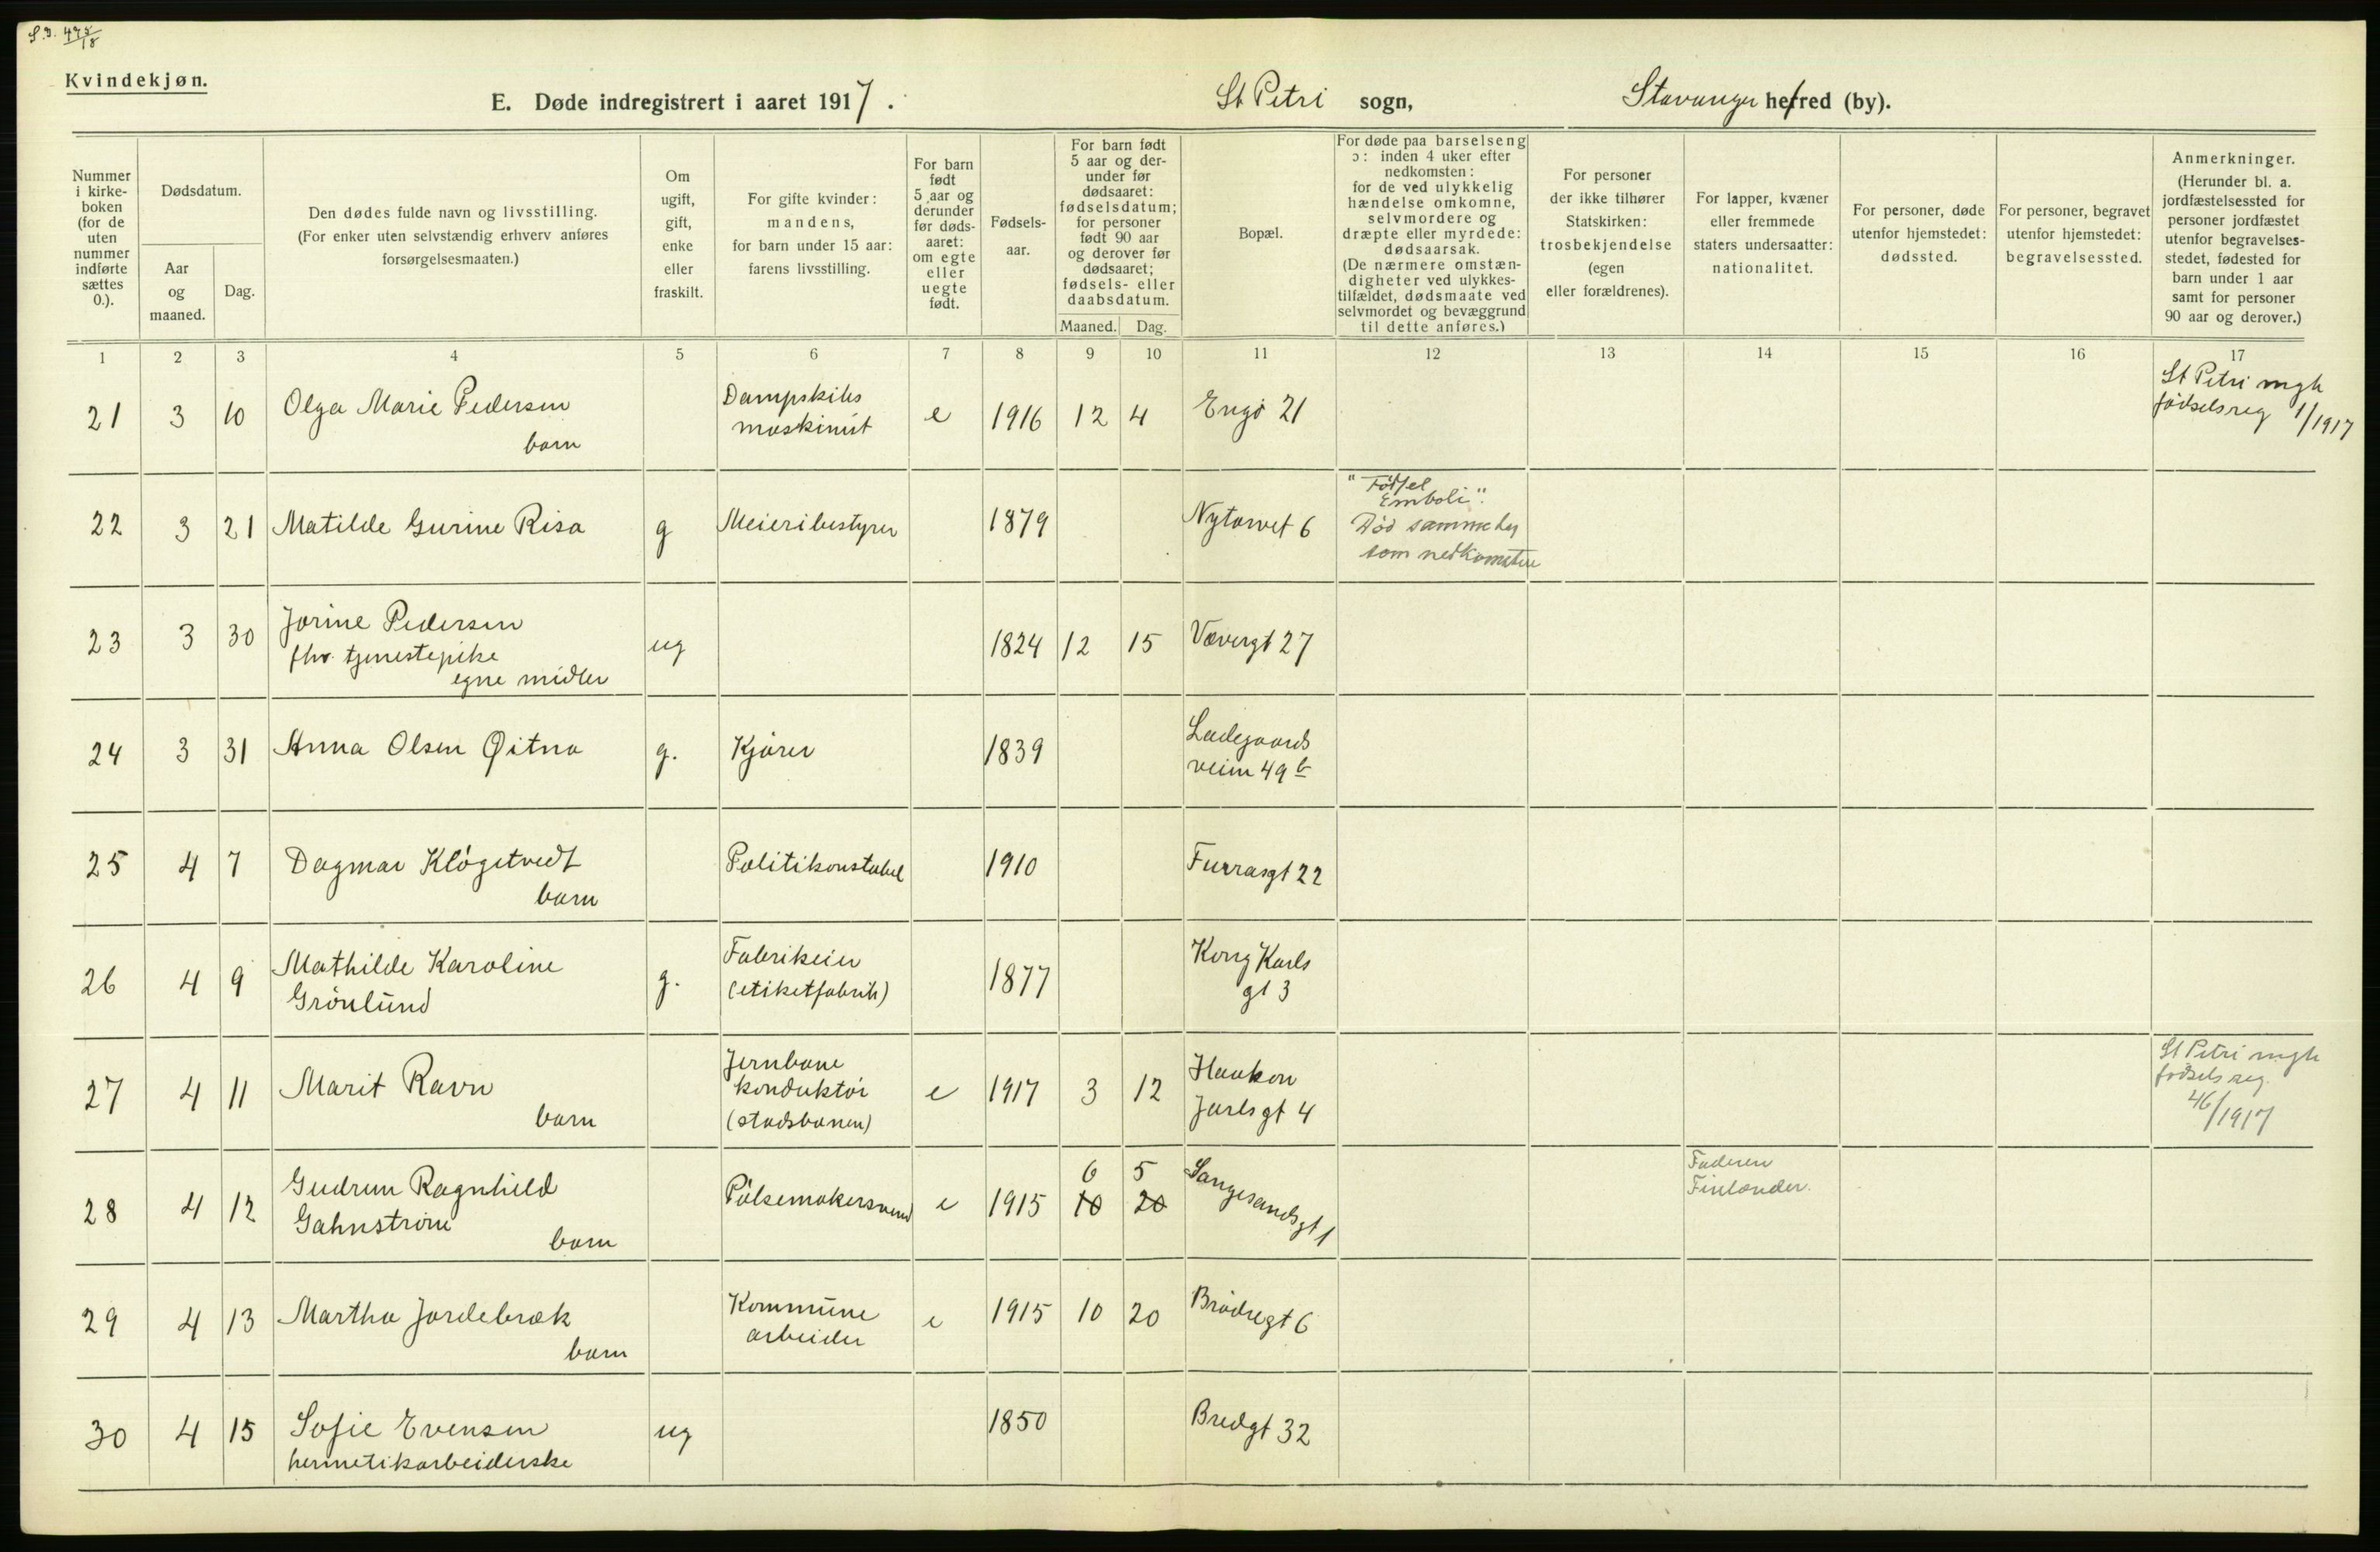 S.D. 475/18
Kvindekjøn.
E. Døde indregistrert i aaret 1917. St Petri sogn, Stavanger herred (by).
Nummer i kirkeboken (for de uten nummer indførte sættes 0.).
Dødsdatum.
Aar og maaned.
Dag.
Den dødes fulde navn og livsstilling.
(For enker uten selvstændig erhverv anføres forsørgelsesmaaten.)
Om ugift, gift, enke eller fraskilt.
For gifte kvinder: mandens, for barn under 15 aar: farens livsstilling.
For barn født 5 aar og derunder før dødsaaret: om egte eller uegte født.
Fødselsaar.
For barn født 5 aar og derunder før dødsaaret: fødselsdatum; for personer født 90 aar og derover før dødsaaret; fødsels- eller daabsdatum.
Maaned. Dag.
Bopæl.
For døde paa barselseng ɔ: inden 4 uker efter nedkomsten: for de ved ulykkelig hændelse omkomne, selvmordere og dræpte eller myrdede: dødsaarsak. (De nærmere omstændigheter ved ulykkestilfældet, dødsmaate ved selvmordet og bevæggrund til dette anføres.)
For personer der ikke tilhører Statskirken: trosbekjendelse (egen eller forældrenes).
For lapper, kvæner eller fremmede staters undersaatter: nationalitet.
For personer, døde utenfor hjemstedet: dødssted.
For personer, begravet utenfor hjemstedet: begravelsessted.
Anmerkninger. (Herunder bl. a. jordfæstelsessted for personer jordfæstet utenfor begravelsesstedet, fødested for barn under 1 aar samt for personer 90 aar og derover.)
1 2 3 4 5 6 7 8 9 10 11 12 13 14 15 16 17
21 3 10 Olga Marie Pedersen barn Dampskibs maskinist e 1916 12 4 Engø 21 St Petri mgh fødselsreg 1/1917
22 3 21 Matilde Gurine Risa g Meieribestyrer 1879 Nytorvet 6 Emboli". Død samme dag som nedkomsten
23 3 30 Jorine Pedersen fhv. tjenestepike egne midler ug 1824 12 15 Vævergt 27
24 3 31 Anna Olsen Øitna g. Kjører 1839 Ladegaards veien 49 b
25 4 7 Dagmar Kløgetvedt barn Politikonstabel 1910 Furrasgt 22
26 4 9 Mathilde Karoline Grönlund g. Fabrikeier (etiketfabrik) 1877 Kong Karls gt 3
27 4 11 Marit Ravn barn Jernbane konduktør (stadsbanen) e 1917 3 12 Haakon Jarlsgt 4 St Petri mgh fødselsreg. 46/1917
28 4 12 Gudrun Ragnhild Gahnström barn Pølsemakersvend e 1915 6 10 5 20 Langesandsgt 1 Faderen Finlænder.
29 4 13 Martha Jordebræk barn Kommune arbeider e 1915 10 20 Brødregt 6
30 4 15 Sofie Evensen hermetikarbeiderske ug 1850 Bredgt 32